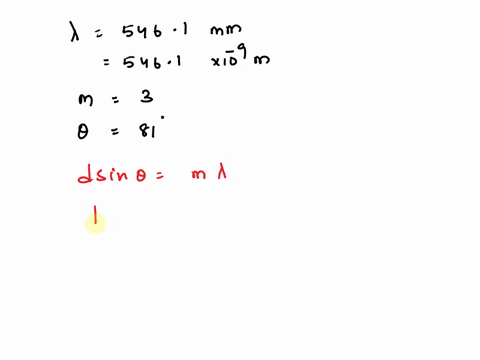 λ = 546.1 mm
= 546.1 ×10⁻⁹ m
m = 3
θ = 81°
dsin θ = m λ